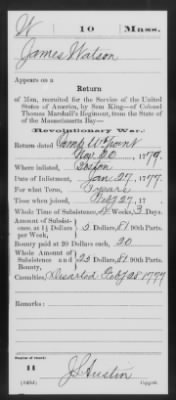 W 10 Mass.
James Watson
Appears on a
Return
of Men, recruited for the Service of the United
States of America, by Sam King—of Colonel
Thomas Marshall's Regiment, from the State of
of the Massachusetts Bay—
Revolutionary War.
Return dated Camp W Point
Nov 20, 1779.
Where inlisted, Boston
Date of Inlistment, Jan 27, 1777.
For what Term, 3 years
Time when joined, 27, 17
Whole Time of Subsistence, Weeks, 3 Days.
Amount of Subsist-
ence, at 1½ Dollars
per Week, Dollars, 81 90th Parts.
Bounty paid at 20 Dollars each, 20
Whole Amount of
Subsistence and
Bounty, Dollars, 81 90th Parts.
Casualties, Deserted 28 1777
Remarks:
Number of record:
11 J S Austin
Copyist.